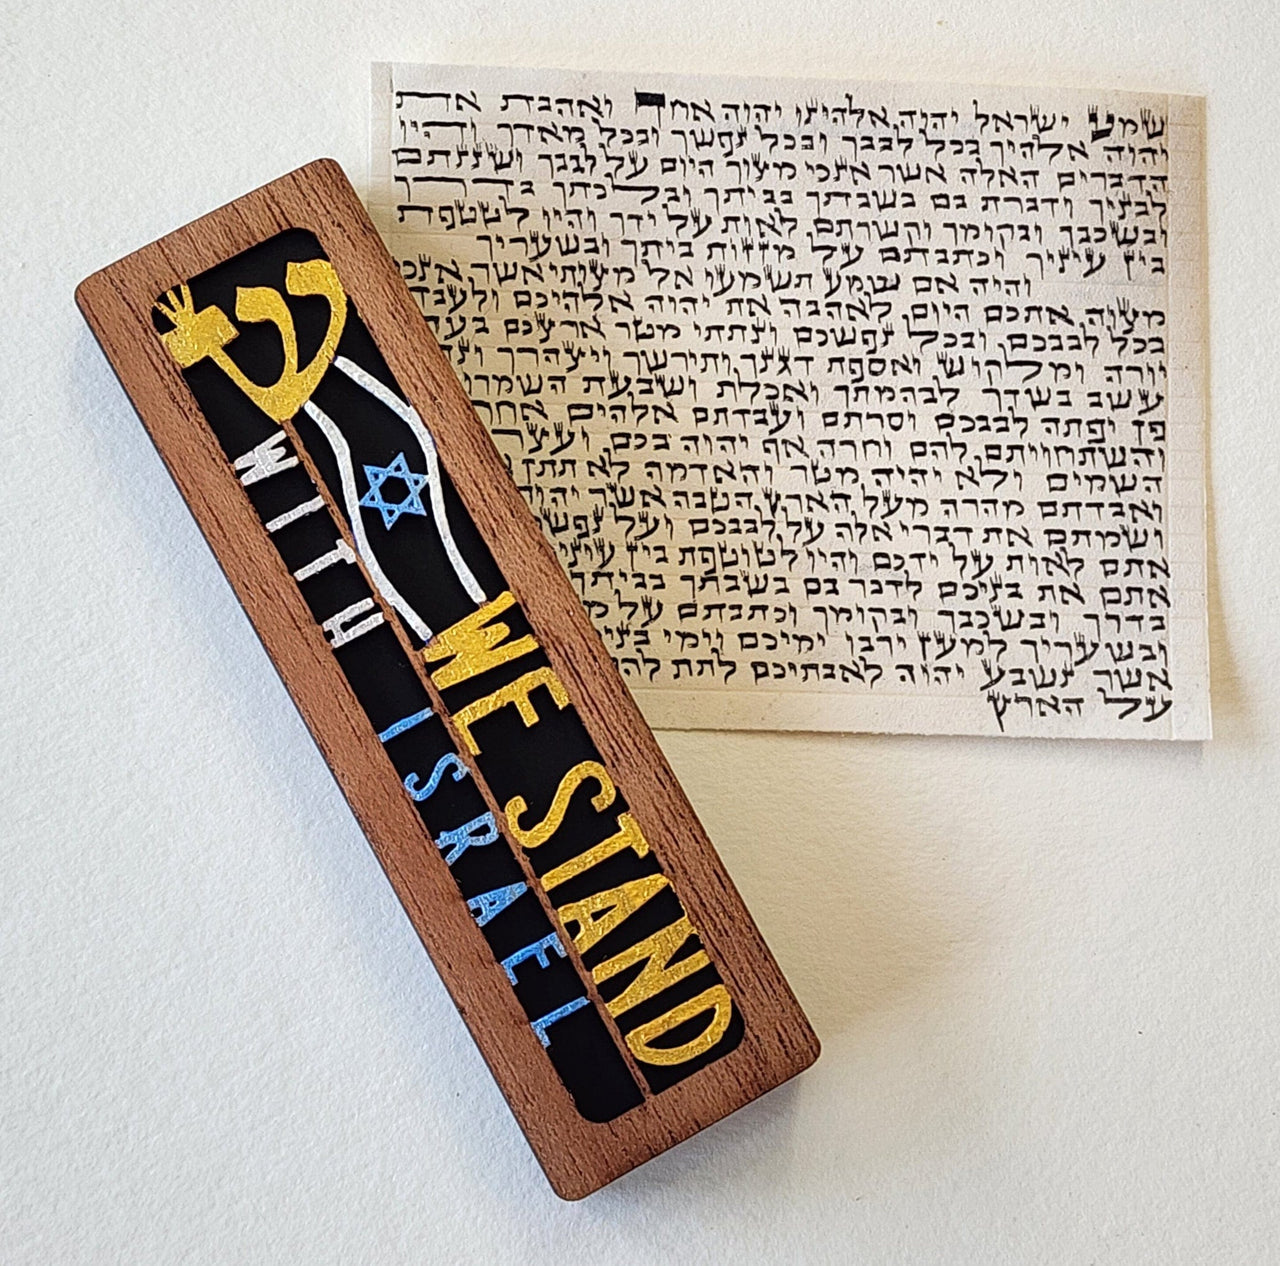 שמע ישראל יהוה אלהינו יהוה אחד ואהבת את
יהוה אלהיך בכל לבבך ובכל נפשך ובכל מאדך והיו
הדברים האלה אשר אנכי מצוך היום על לבבך ושננתם
לבניך ודברת בם בשבתך בביתך ובלכתך בדרך
ובשכבך ובקומך וקשרתם לאות על ידך והיו לטטפת
בין עיניך וכתבתם על מזזות ביתך ובשעריך
והיה אם שמע תשמעו אל מצותי אשר אנכי
מצוה אתכם היום לאהבה את יהוה אלהיכם
בכל לבבכם ובכל נפשכם ונתתי מטר ארצכם
יורה ומלקוש ואספת דגנך ותירשך ויצהרך
עשב בשדך לבהמתך ואכלת ושבעת השמרו
פן יפתה לבבכם וסרתם ועבדתם אלהים
והשתחויתם להם וחרה אף יהוה בכם ועצר
השמים ולא יהיה מטר והאדמה לא תתן
ואבדתם מהרה מעל הארץ הטבה אשר יהוה
ושמתם את דברי אלה על לבבכם ועל
אתם לאות על ידכם והיו לטוטפת בין
אתם את בניכם לדבר בם בשבתך בביתך
בדרך ובשכבך ובקומך וכתבתם על
ובשעריך למען ירבו ימיכם וימי
אשר נשבע יהוה לאבתיכם לתת
על הארץ
ש
WE STAND
WITH ISRAEL